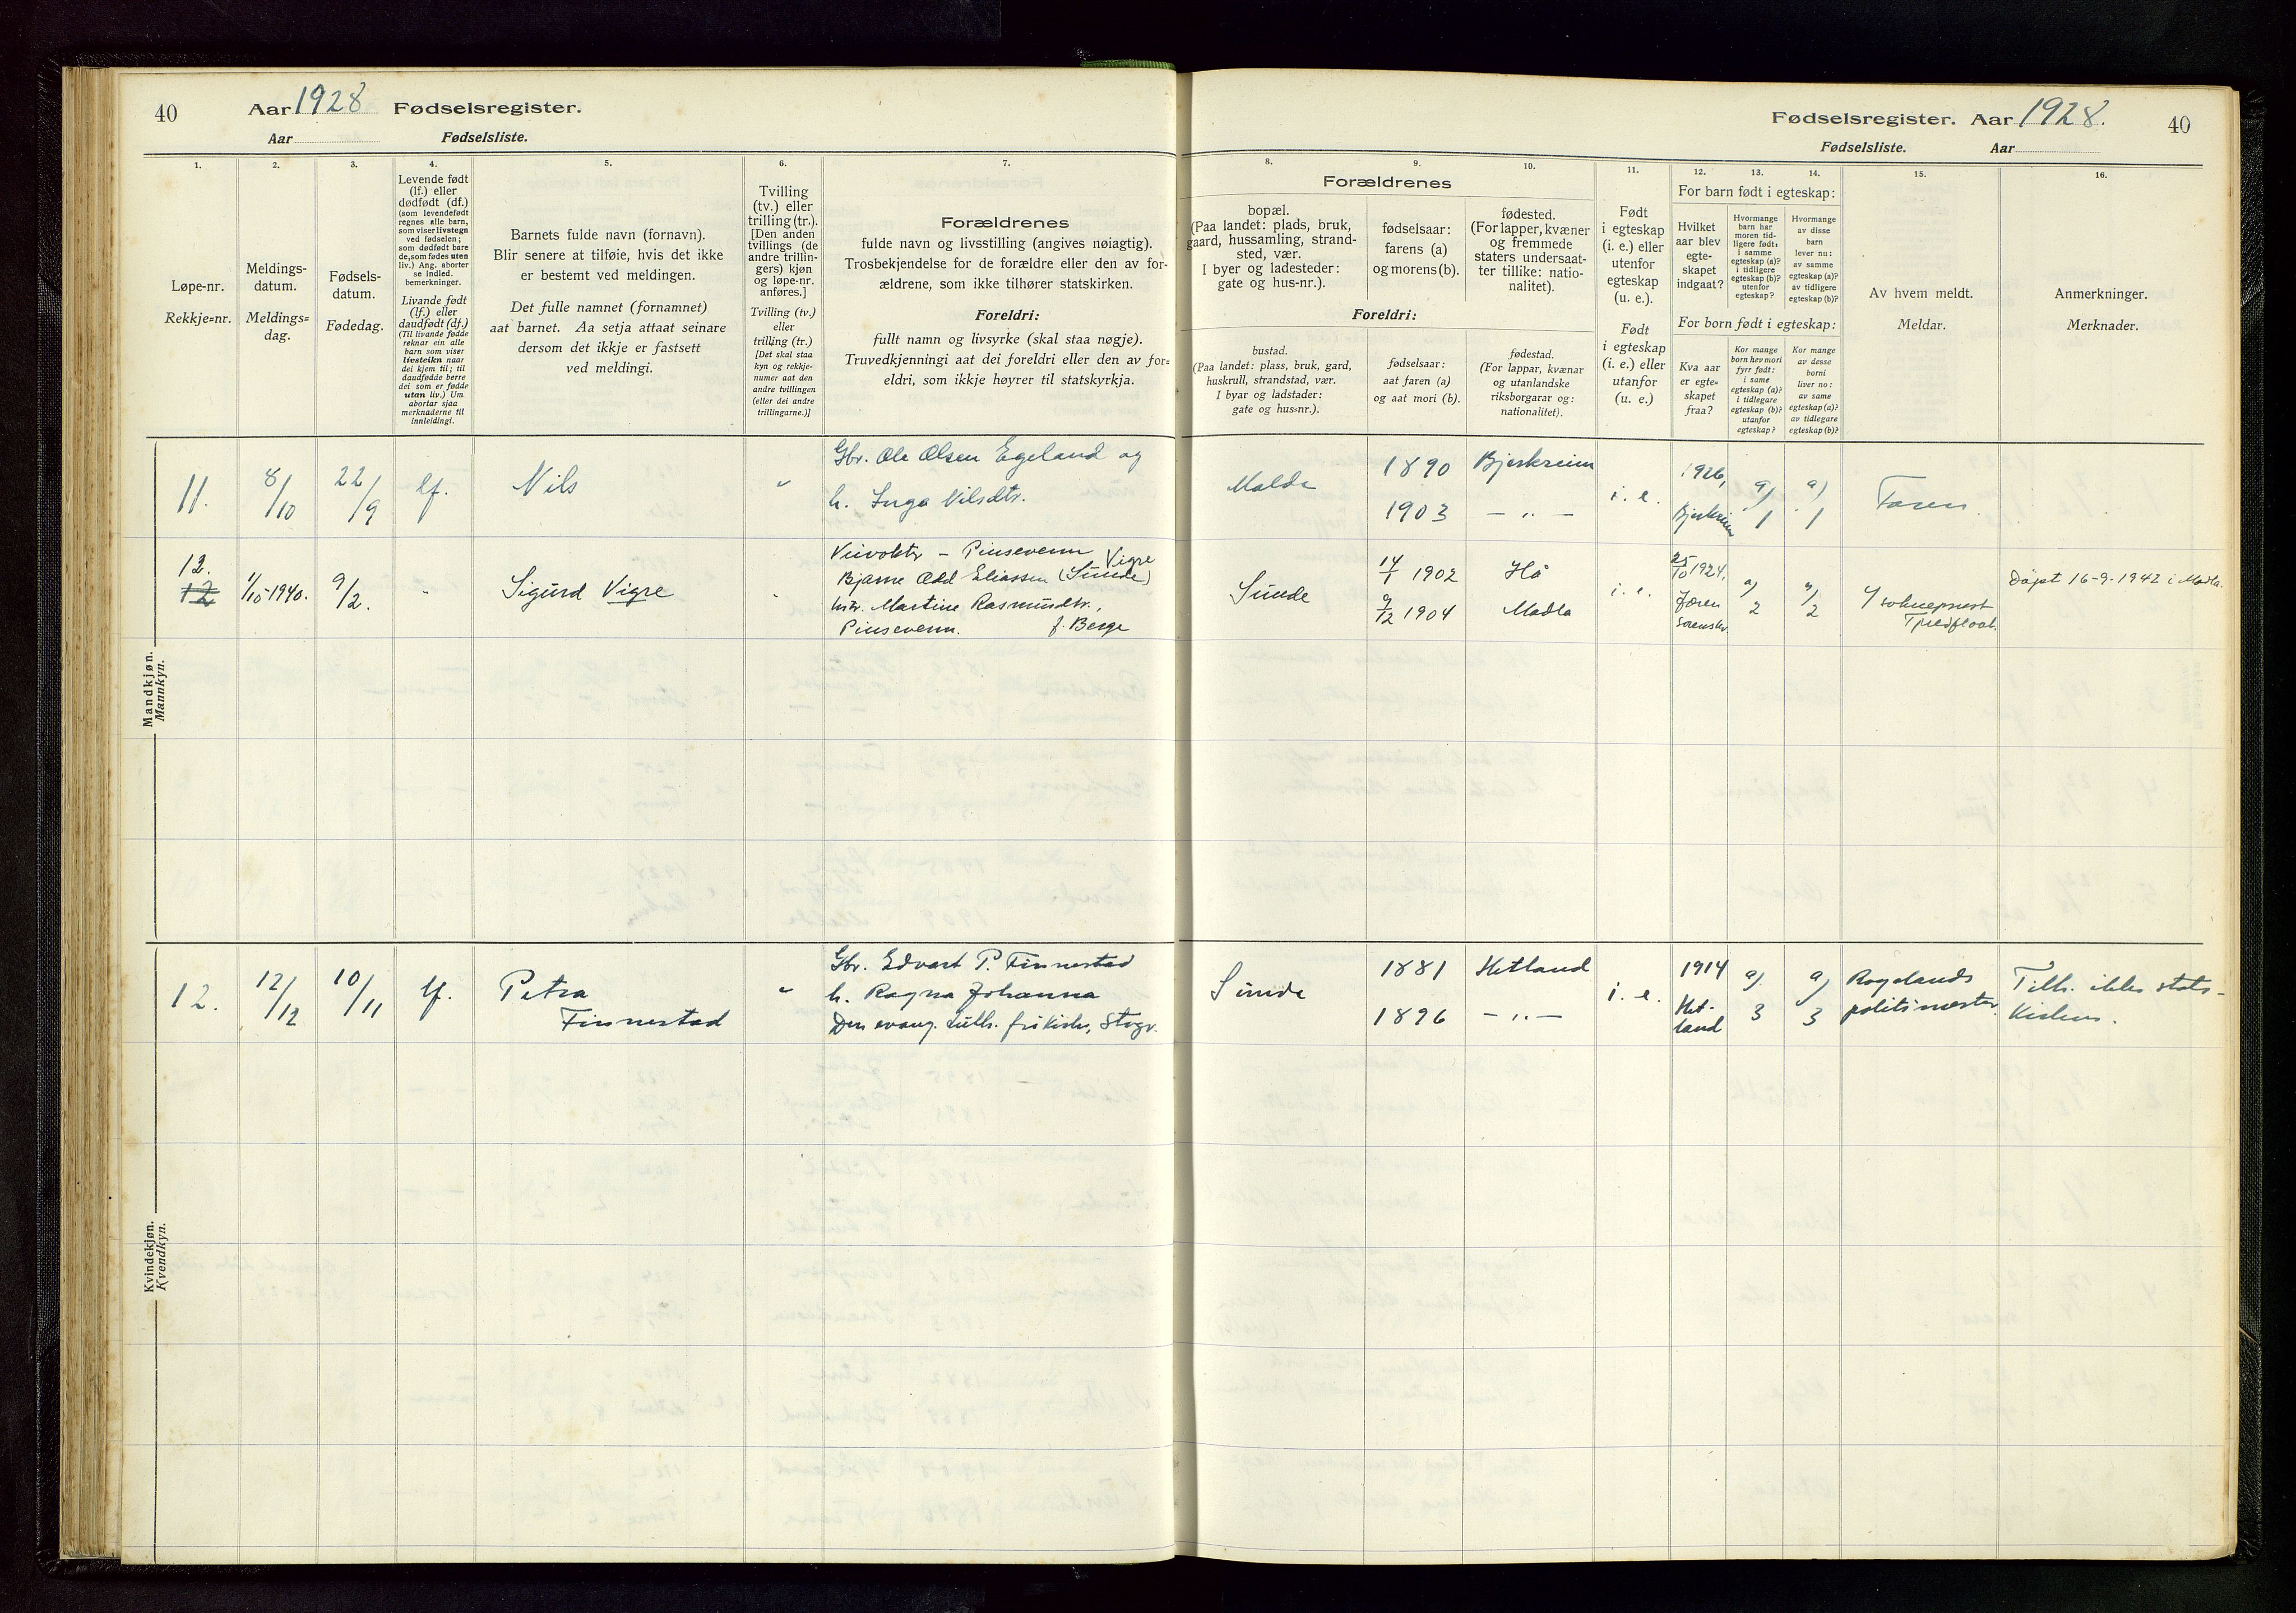 40
Aar 1928 Fødselsregister.
Aar Fødselsliste.
Fødselsregister. Aar 1928.
40
Fødselsliste. Aar
1.
Løpe-nr.
Rekkje=nr.
2.
Meldings-
datum.
Meldings=
dag.
3.
Fødsels-
datum.
Fødedag.
4.
Levende født
(lf.) eller
dødfødt (df.)
(som levendefødt
regnes alle barn,
som viser livstegn
ved fødselen;
som dødfødt bare
de, som fødes uten
liv.) Ang. aborter
se indled.
bemerkninger.
Livande født
(lf.) eller
daudfødt (df.)
(Til livande fødde
reknar ein alle
barn som viser
livsteikn naar
dei kjem til; til
daudfødde berre
dei som er fødde
utan liv.) Um
abortar sjaa
merknaderne til
innleidingi.
5.
Barnets fulde navn (fornavn).
Blir senere at tilføie, hvis det ikke
er bestemt ved meldingen.
Det fulle namnet (fornamnet)
aat barnet. Aa setja attaat seinare
dersom det ikkje er fastsett
ved meldingi.
6.
Tvilling
(tv.) eller
trilling (tr.).
[Den anden
tvillings (de
andre trillin-
gers) kjøn
og løpe-nr.
anføres.]
Tvilling (tv.)
eller
trilling (tr.)
[Det skal staa
kyn og rekkje-
numer aat den
andre tvillingen
(eller dei andre
trillingarne.)]
7.
Forældrenes
fulde navn og livsstilling (angives nøiagtig).
Trosbekjendelse for de forældre eller den av for-
ældrene, som ikke tilhører statskirken.
Foreldri:
fullt namn og livsyrke (skal staa nøgje).
Truvedkjenningi aat dei foreldri eller den av for=
eldri, som ikkje høyrer til statskyrkja.
8.
9.
10.
Forældrenes
bopæl.
(Paa landet: plads, bruk,
gaard, hussamling, strand-
sted, vær.
I byer og ladesteder:
gate og hus-nr.).
fødselsaar:
farens (a)
og morens (b).
fødested.
(For lapper, kvæner
og fremmede
staters undersaat-
ter tillike: natio-
nalitet).
Foreldri:
bustad.
(Paa landet: plass, bruk, gard,
huskrull, strandstad, vær.
I byar og ladstader:
gate og hus=nr.).
fødselsaar:
aat faren (a)
og aat mori (b).
fødestad.
(For lappar, kvænar
og utanlandske
riksborgarar og:
nationalitet).
11.
Født
i egteskap
(i. e.) eller
utenfor
egteskap
(u. e.).
Født
i egteskap
(i. e.) eller
utanfor
(u. e.)
12.
13.
14.
For barn født i egteskap:
Hvilket
aar blev
egte-
skapet
indgaat?
Hvormange
barn har
moren tid-
ligere født:
i samme
egteskap (a)?
i tidligere
egteskap (b)?
utenfor
egteskap?
Hvormange
av disse
barn
lever nu:
av samme
egteskap (a)?
av tidligere
egteskap (b)?
For born født i egteskap:
Kva aar
er egte=
skapet
fraa?
Kor mange
born hev mori
fyrr født:
i same
egteskap (a)?
i tidlegare
egteskap (b)?
utanfor
egteskap?
Kor mange
av desse
borni
liver no:
av same
egteskap (a)?
av tidlegare
egteskap (b)?
15.
Av hvem meldt.
Meldar.
16.
Anmerkninger.
Merknader.
Mandkjøn.
Mannkyn.
11. 8/10 22/9 lf. Nils "
Gbr. Ole Olsen Egeland og
h. Inga Nilsdtr.
Malde
1890 Bjerkreim
1903 – " –
i. e.
1926,
Bjerkreim
a) 1
a) 1
Faren.
12.
12
1/10-1940. 9/2. " Sigurd Vigre "
Veivokter – Pinsevenn
Bjarne Odd Eliassen (Sunde) Vigre
hstr. Martine Rasmusdtr.,
Pinsevenn. f. Berge
Sunde
14/1 1902 Hå
9/12 1904 Madla
i. e.
25/10 1924,
Jæren
Sorenskr.
a) 2
a) 2
Døpt 16-9-1942 i Madla.
Kvindekjøn.
Kvendkyn.
12. 12/12 10/11 lf. Petra
Finnestad
"
Gbr. Edvart P. Finnestad
h. Ragna Johanna
Den evang. luth. frikirke, Stvgr.
Sunde
1881 Hetland
1896 – " –
i. e.
1914
Het-
land
a) 3
a) 3
Rogalands
politimester.
Tilh. ikke stats-
kirken.